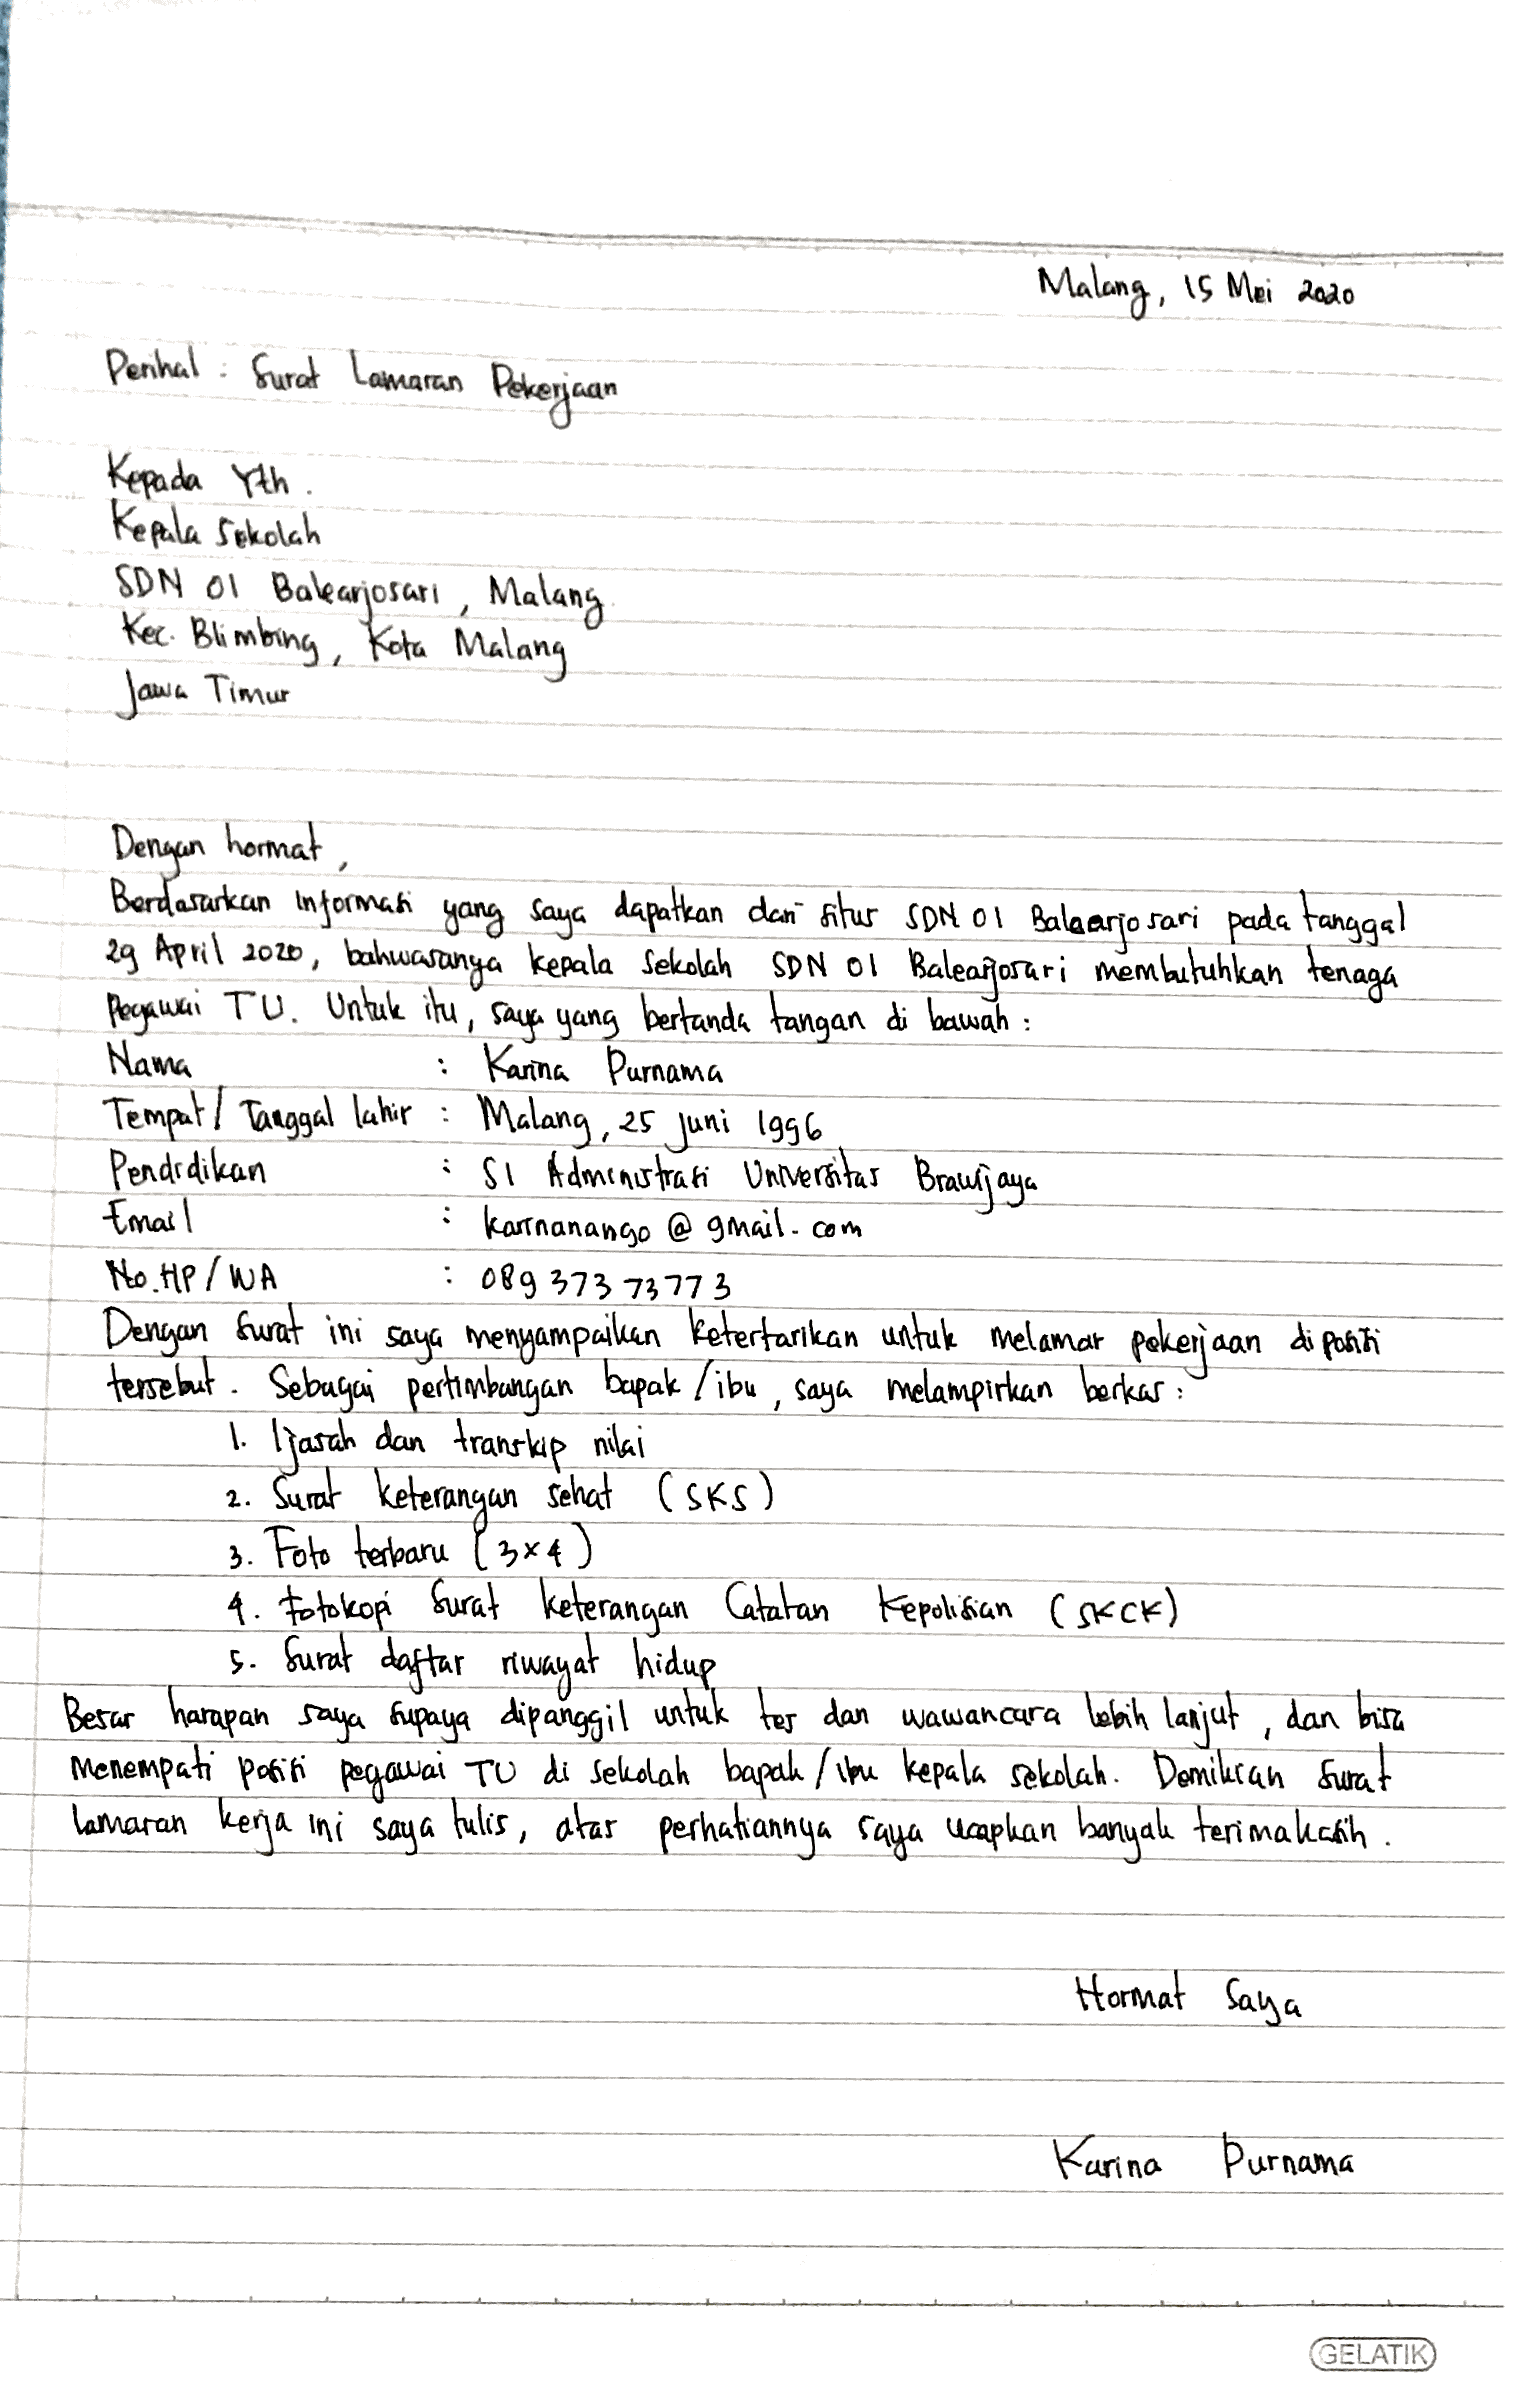 Malang, 15 Mei 2020
Perihal : Surat Lamaran Pekerjaan
Kepada Yth.
Kepala Sekolah
SDN 01 Balearjosari, Malang
Kec. Blimbing, Kota Malang
Jawa Timur
Dengan hormat,
Berdasarkan informasi yang saya dapatkan dari situs SDN 01 Balearjosari pada tanggal
29 April 2020, bahwasanya kepala sekolah SDN 01 Balearjosari membutuhkan tenaga
Pegawai TU. Untuk itu, saya yang bertanda tangan di bawah :
Nama : Karina Purnama
Tempat / Tanggal lahir : Malang, 25 Juni 1996
Pendidikan : S1 Administrasi Universitas Brawijaya
Email : karinanango@gmail.com
No.HP/WA : 089 373 73773
Dengan Surat ini saya menyampaikan ketertarikan untuk melamar pekerjaan di posisi
tersebut. Sebagai pertimbangan bapak/ibu, saya melampirkan berkas :
1. Ijasah dan transkip nilai
2. Surat keterangan sehat (SKS)
3. Foto terbaru (3x4)
4. Fotokopi Surat keterangan Catatan Kepolisian (SKCK)
5. Surat daftar riwayat hidup
Besar harapan saya supaya dipanggil untuk tes dan wawancara lebih lanjut, dan bisa
menempati posisi pegawai TU di sekolah bapak/ibu kepala sekolah. Demikian Surat
lamaran kerja ini saya tulis, atas perhatiannya saya ucapkan banyak terimakasih.
Hormat Saya
Karina Purnama
GELATIK